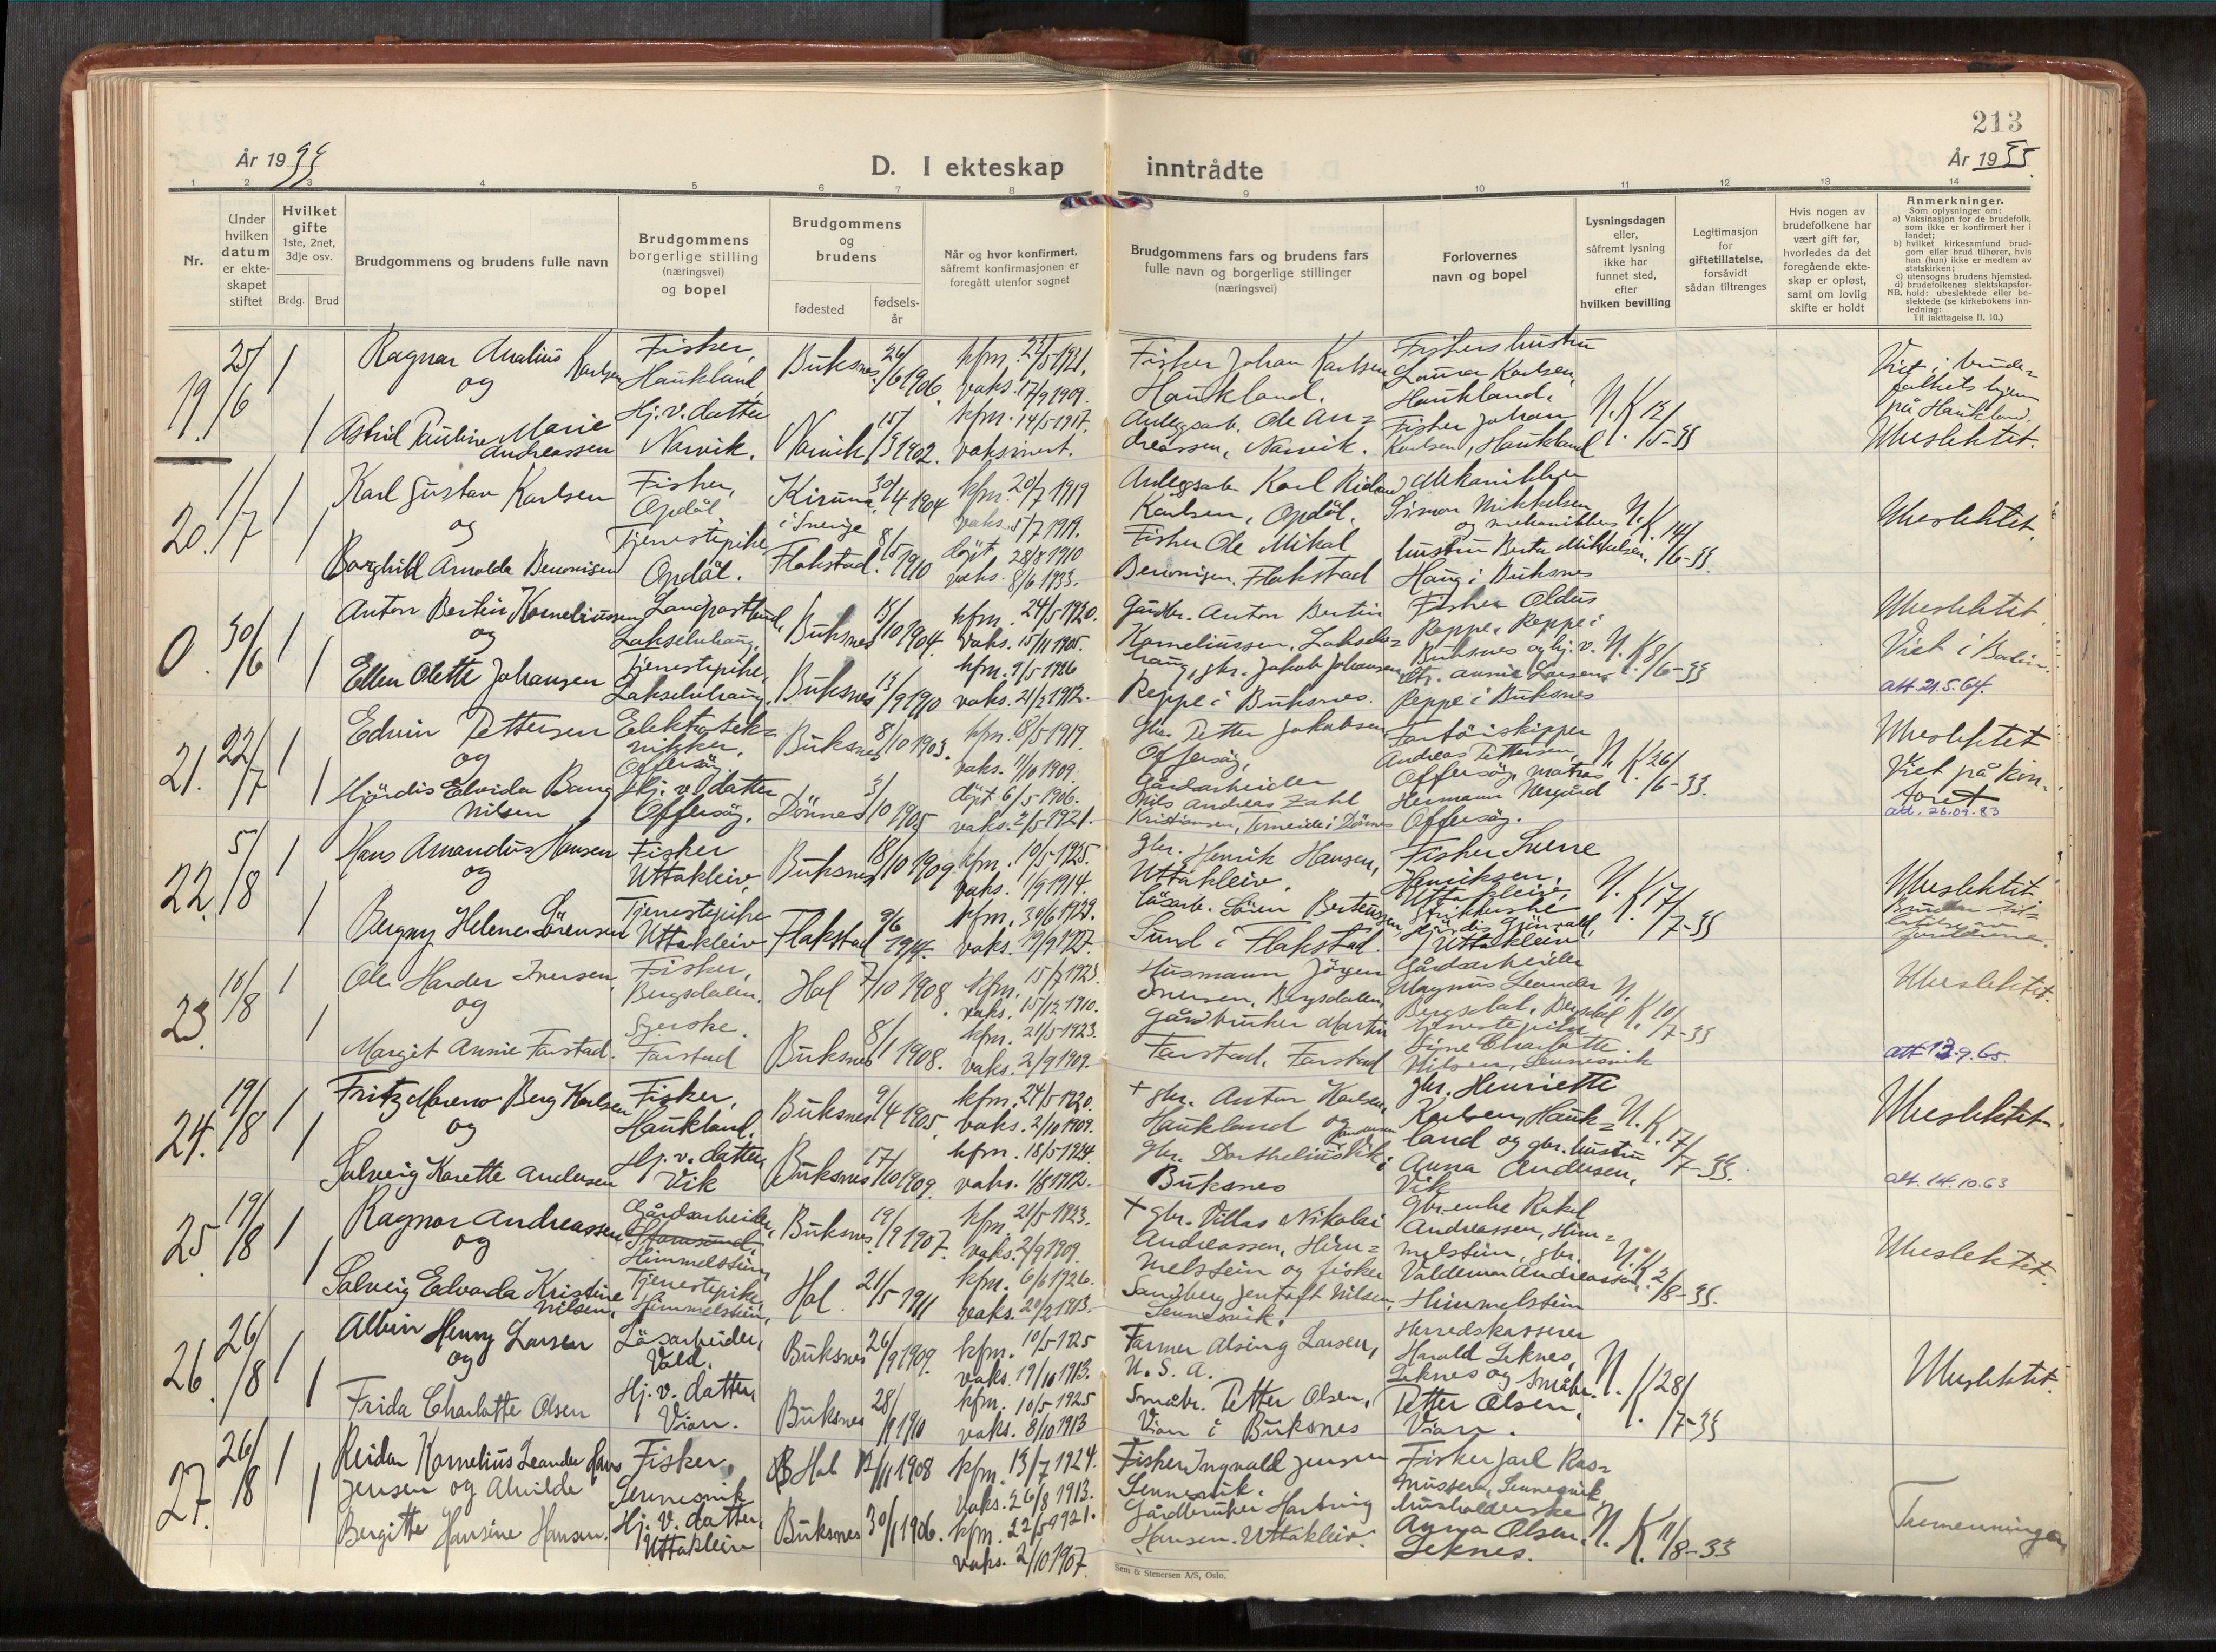 213
År 1933
D. I ekteskap inntrådte
År 1933.
1 2 3 4 5 6 7 8 9 10 11 12 13 14
Nr.
Under hvilken datum er ekteskapet stiftet
Hvilket gifte 1ste, 2net, 3dje osv.
Brdg. Brud
Brudgommens og brudens fulle navn
Brudgommens borgerlige stilling (næringsvei) og bopel
Brudgommens og brudens
fødested
fødsels-år
Når og hvor konfirmert, såfremt konfirmasjonen er foregått utenfor sognet
Brudgommens fars og brudens fars fulle navn og borgerlige stillinger (næringsvei)
Forlovernes navn og bopel
Lysningsdagen eller, såfremt lysning ikke har funnet sted, efter hvilken bevilling
Legitimasjon for giftetillatelse, forsåvidt sådan tiltrenges
Hvis nogen av brudefolkene har vært gift før, hvorledes da det foregående ekteskap er opløst, samt om lovlig skifte er holdt
Anmerkninger.
Som oplysninger om:
a) Vaksinasjon for de brudefolk, som ikke er konfirmert her i landet;
b) hvilket kirkesamfund brudgom eller brud tilhører, hvis han (hun) ikke er medlem av statskirken;
c) utensogns brudens hjemsted.
d) brudefolkenes slektskapsforhold: ubeslektede eller beslektede (se kirkebokens innledning:
NB.
Til iakttagelse II. 10.)
19. 25/6 1 Ragnar Analius Karlsen Fisker, Haukland Buksnes 26/6 1906. kfm. 22/5 1921. vaks. 17/9 1909. Fisker Johan Karlsen Haukland. Fiskers hustru Laura Karlsen, Haukland.
og
1 Astrid Pauline Marie Andreassen Hj. v. datter Narvik. Narvik 15/3 1902. kfm. 14/5 1917. vaksinert. Anleggsarb. Ole Andreassen, Narvik. Fisker Johan Karlsen, Haukland N.K. 12/5-33
Viet i brudefolkets hjem på Haukland. Ubeslektet.
20. 1/7 1 Karl Gustav Karlsen Fisker, Opdøl Kiruna i Sverige 30/4 1904 kfm. 20/7 1919 vaks. 5/7 1919. Anleggsarb. Karl Karlsen, Opdøl. Mekanikker Simon Mikkelsen
og
1 Borghild Arnolda Benonisen Tjenestepike Opdøl. Flakstad. 8/5 1910 døpt 28/8 1910 vaks. 8/6 1933. Fisker Ole Mikal Benonisen. Flakstad og mekanikkers hustru Berta Mikkelsen. Haug i Buksnes N.K. 14/6-33.
Ubeslektet.
0. 30/6 1 Anton Bertin Korneliussen Landpostbud, Lakselvhaug. Buksnes 15/10 1904. kfm. 24/5 1920. vaks. 15/11 1905. Gårdbr. Anton Bertin Korneliussen, Lakselvhaug, Fisker Oldus Reppe, Reppe i Buksnes
og
1 Ellen Olette Johansen Tjenestepike, Lakselvhaug. Buksnes 13/9 1910 kfm. 9/5 1926 vaks. 21/2 1912. gbr. Jakob Johansen Reppe i Buksnes. og hj. v. dtr. Annie Larsen, Reppe i Buksnes N.K. 8/6-33
Ubeslektet. Viet i Bodin. att. 21.5.64.
21. 22/7 1 Edvin Pettersen Elektrotekniker. Offersøy. Buksnes 8/10 1903. kfm. 18/5 1919 vaks. 1/10 1909. Gbr. Petter Jakobsen Offersøy, Fartøiskipper Andreas Pettersen, Offersøy,
og
1 Hjördis Elvida Bang Nilsen Hj. v. datter Offersøy. Dönnes 3/10 1905 døpt 6/5 1906. vaks. 2/5 1921. Gårdarbeider Nils Andreas Zahl Kristiansen, i Dønnes matros Hermann Nergård Offersøy. N.K. 26/6-33.
Ubeslektet Viet på kontoret att. 26.09.83
22. 5/8 1 Hans Amandus Hansen Fisker Uttakleiv, Buksnes 18/10 1909 kfm. 10/5 1925. vaks. 1/9 1914. Gbr. Henrik Hansen, Uttakleiv, Fisker Sverre Henriksen, Uttakleiv,
og
1 Bergny Helene Sörensen Tjenestepike Uttakleiv Flakstad 9/6 1914. kfm. 30/6 1929. vaks. 19/9 1927. Løsarb. Sören Berteussen, Sund i Flakstad. Strikkerske Uttakleiv N.K. 17/7-33
Ubeslektet.
23. 10/8 1 Ole Harder Iversen Fisker, Bergsdalen. Hol 7/10 1908. kfm. 15/7 1923. vaks. 15/12 1910. Husmann Jörgen Iversen, Bergsdalen, Gårdsarbeider Magnus Leander Bergsdal, Bergsdal
og
1 Margit Annie Farstad. Syerske. Farstad Buksnes 8/1 1908. kfm. 21/5 1923. vaks. 2/9 1909. Gårdbruker Martin Farstad, Farstad tjenestepike Signe Charlotte Nilsen, Sennesvik N.K. 10/7-33
Ubeslektet. att 13.9.65.
24. 19/8 1 Fritz Moreno Berg Karlsen Fisker, Haukland, Buksnes 9/4 1905. kfm. 24/5 1920. vaks. 2/10 1909. + gbr. Anton Karlsen, Haukland og gbr. Henriette Karlsen, Haukland
og
1 Solveig Karette Andersen Hj. v. datter, Vik Buksnes 17/10 1909. kfm. 18/5 1924. vaks. 1/8 1912. gbr. Dorthelius Andersen Vik i Buksnes og gbr. hustru Anna Andersen, Vik N.K. 17/7-33.
Ubeslektet. att. 14.10.63
25. 19/8 1 Ragnar Andreassen Gårdsarbeider, Stamsund, Himmelstein Buksnes. 19/9 1907. kfm. 21/5 1923. vaks. 2/9 1909. + gbr. Villas Nikolai Andreassen, Himmelstein og Gbr. enke Rakel Andreassen, Himmelstein,
og
1 Solveig Edvarda Kristine Nilsen, Tjenestepike, Himmelstein, Hol. 21/5 1911 kfm. 6/6 1926. vaks. 20/2 1913. fisker Sandberg Jentoft Nilsen, Sennesvik. gbr. Valdemar Andreassen, Himmelstein N.K. 2/8-33.
Ubeslektet.
26. 26/8 1 Albin Henry Larsen Løsarbeider, Vold. Buksnes 26/9 1909. kfm. 10/5 1925 vaks. 19/10 1913. Farmer Alsing Larsen, U.S.A. Herredskasserer Harald Leknes, Leknes
og
1 Frida Charlotte Olsen Hj. v. datter, Vian. Buksnes 28/1 1910 kfm. 10/5 1925 vaks. 8/10 1913 Småbr. Petter Olsen, Vian i Buksnes og småbr. Petter Olsen, Vian. N.K. 28/7-33
Ubeslektet.
27. 26/8 1 Reidar Kornelius Leander Hans Jensen Fisker, Sennesvik Hol 12/11 1908 kfm. 13/7 1924. vaks. 26/8 1913. Fisker Ingvald Jensen Sennesvik. Fisker Jarl Rasmussen, Sennesvik,
1 og Alvilde Bergitte Hansine Hansen. Hj. v. datter, Uttakleiv Buksnes 30/1 1906. kfm. 22/5 1921. vaks. 2/10 1907. Gårdbruker Hartvig Hansen. Uttakleiv. husholderske Anna Olsen. Leknes. N.K. 11/8-33
Tremenninger
Sem & Stenersen A/S, Oslo.